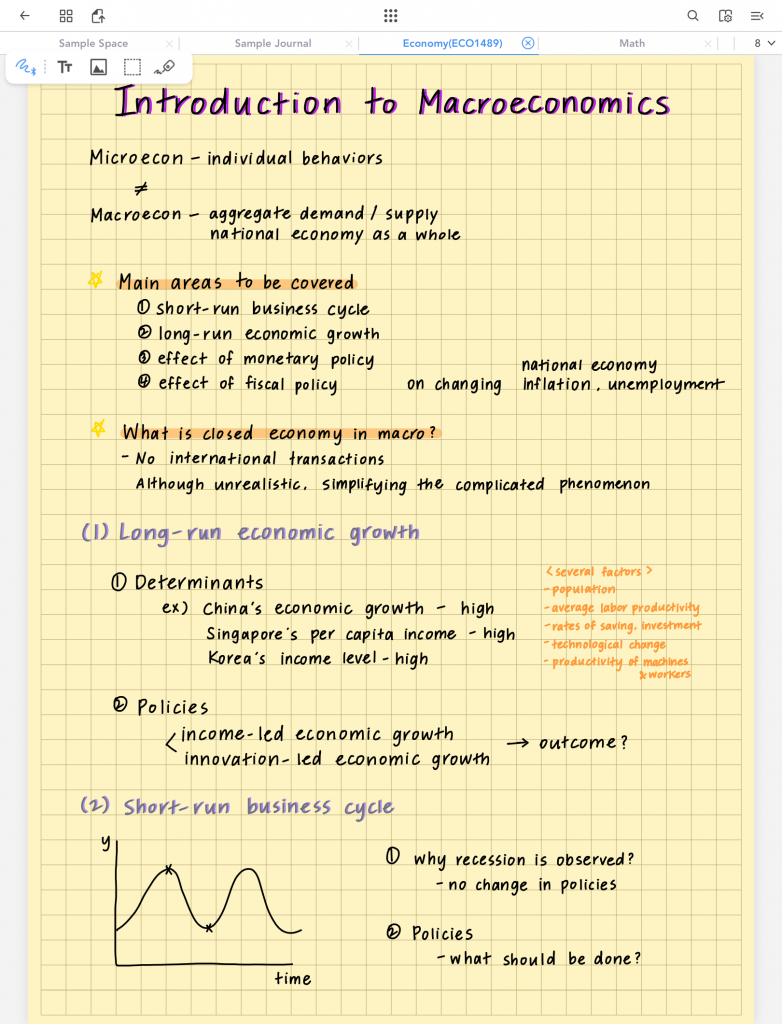 Sample Space
Sample Journal
Economy(ECO1489)
Math
8
Tт
Introduction to Macroeconomics
Microecon – individual behaviors
≠
Macroecon – aggregate demand / supply
national economy as a whole
Main areas to be covered
① short-run business cycle
② long-run economic growth
③ effect of monetary policy
④ effect of fiscal policy on changing national economy
inflation, unemployment
What is closed economy in macro?
- No international transactions
Although unrealistic, simplifying the complicated phenomenon
(1) Long-run economic growth
① Determinants
ex) China's economic growth – high
Singapore's per capita income – high
Korea's income level – high
<several factors>
- population
- average labor productivity
- rates of saving, investment
- technological change
- productivity of machines
& workers
② Policies
< income-led economic growth
innovation-led economic growth
→ outcome?
(2) Short-run business cycle
y
time
① why recession is observed?
- no change in policies
② Policies
- what should be done?